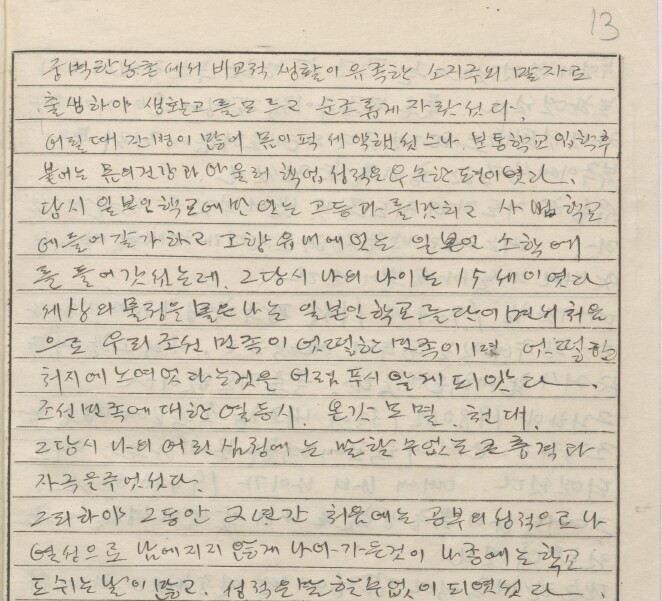 13
중벽한 농촌에서 비교적 생활이 유족한 소지주의 말자로
출생하야 생활고를 모르고 순조롭게 자랏섯다.
어릴때 잔병이 많어 몸이 퍽 세약했섯스나 보통학교 입학후
붙어는 몸의건강과 아울러 학업성적은 우수한 편이엿다.
당시 일본인학교에만 있는 고등과를 맞치고 사범학교
에 들어갈가하고 고향 읍내에있는 일본인 소학에
를 들어갓섯는데. 그당시 나의 나이는 15세이였다
세상의 물정을 몰은 나는 일본인학교를 단이면서 처음
으로 우리 조선 민족이 엇떨한 민족이며 엇떨한
처지에 노여엇다는것을 어렴푸시 알게 되얏다.
조선민족에 대한 열등시. 온갖 모멸. 천대.
그당시 나의 어린 심정에는 말할수없는 큰 충격과
자극을 주엇섯다.
그리하야 그동안 2년간 처음에는 공부의 성적으로나
열성으로 남에지지 않게 나아가든것이 나종에는 학교
도 쉬는날이 많고. 성적은 말할수없이 되였섯다.